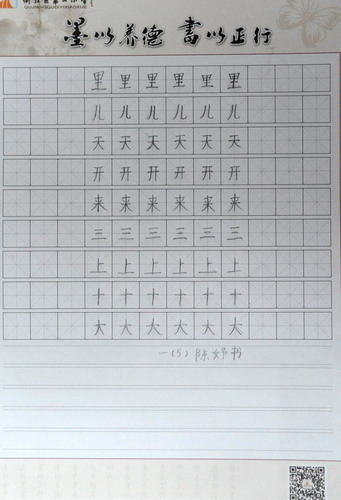 墨以养德 書以正行
里里里里里里
儿儿儿儿儿儿
天天天天天天
开开开开开开
来来来来来来
三三三三三三
上上上上上上
十十十十十十
大大大大大大
一(5) 陈妤书